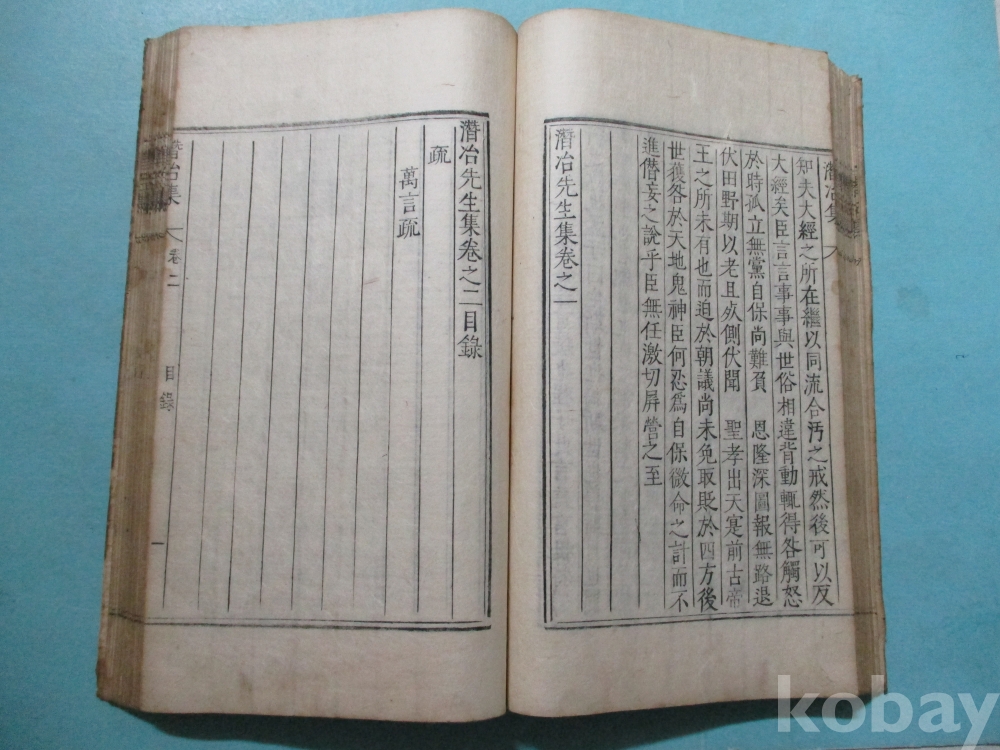 潛冶集
知夫大經之所在繼以同流合汚之戒然後可以反
大經矣臣言言事事與世俗相違背動輒得咎觸怒
於時孤立無黨自保尚難負　恩隆深圖報無路退
伏田野期以老且死側伏聞　聖孝出天寔前古帝
王之所未有也而迫於朝議尚未免取貶於四方後
世獲咎於天地鬼神臣何忍爲自保微命之計而不
進僭妄之說乎臣無任激切屏營之至
潛冶先生集卷之一
潛冶先生集卷之二目錄
疏
萬言疏
潛冶集　卷二　目錄　一
kobay